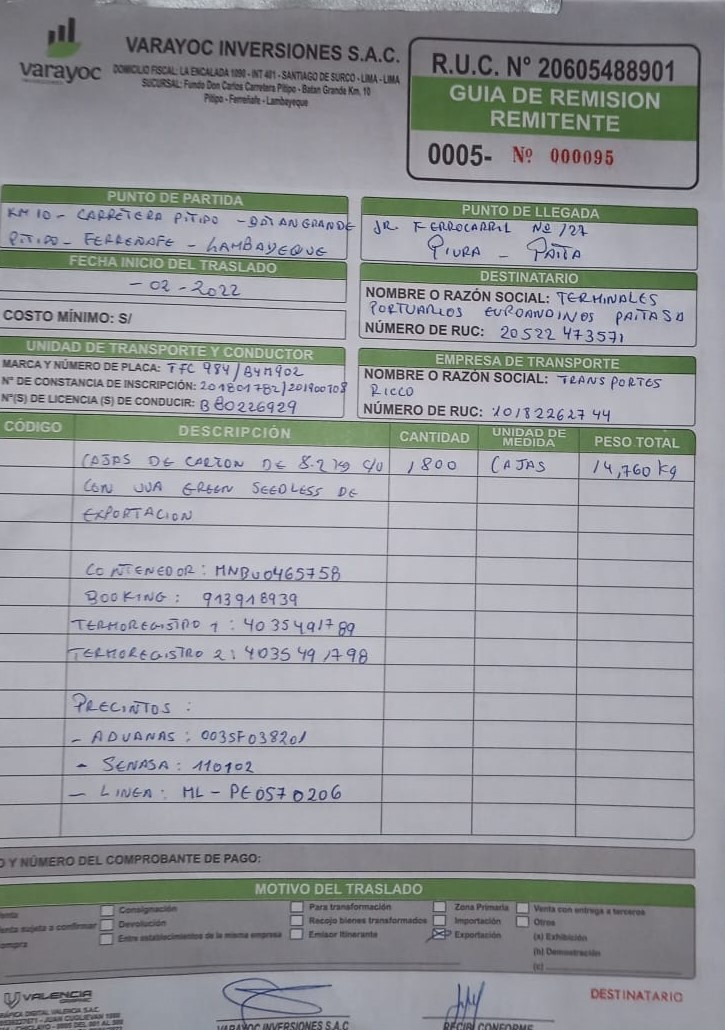 varayoc
VARAYOC INVERSIONES S.A.C.
DOMICILIO FISCAL: LA ENCALADA 1090 - INT 401 - SANTIAGO DE SURCO - LIMA - LIMA
SUCURSAL: Fundo Don Carlos Carretera Pitipo - Batan Grande Km. 10
Pitipo - Ferreñafe - Lambayeque
R.U.C. Nº 20605488901
GUIA DE REMISION
REMITENTE
0005- Nº 000095
PUNTO DE PARTIDA
KM 10 - CARRETERA PITIPO - BATANGRANDE
PITIPO - FERREÑAFE - LAMBAYEQUE
PUNTO DE LLEGADA
JR. FERROCARRIL Nº 127
PIURA - PAITA
FECHA INICIO DEL TRASLADO
- 02 - 2022
COSTO MÍNIMO: S/
DESTINATARIO
NOMBRE O RAZÓN SOCIAL: TERMINALES
PORTUARIOS EUROANDINOS PAITA SA
NÚMERO DE RUC: 20522473571
UNIDAD DE TRANSPORTE Y CONDUCTOR
MARCA Y NÚMERO DE PLACA: TFC 984/B4M902
Nº DE CONSTANCIA DE INSCRIPCIÓN: 201801782/201900708
Nº(S) DE LICENCIA (S) DE CONDUCIR: B80226929
EMPRESA DE TRANSPORTE
NOMBRE O RAZÓN SOCIAL: TRANSPORTES
RICCO
NÚMERO DE RUC: 10182262744
CÓDIGO DESCRIPCIÓN CANTIDAD UNIDAD DE MEDIDA PESO TOTAL
CAJAS DE CARTON DE 8.2 KG C/U 1800 CAJAS 14,760 Kg
CON UVA GREEN SEEDLESS DE
EXPORTACION
CONTENEDOR: MNBU0465758
BOOKING: 913918939
TERMOREGISTRO 1: 4035491789
TERMOREGISTRO 2: 4035491798
PRECINTOS:
- ADUANAS: 0035F038201
- SENASA: 110102
- LINEA: ML-PE0570206
O Y NÚMERO DEL COMPROBANTE DE PAGO:
MOTIVO DEL TRASLADO
Consignación
Para transformación
Zona Primaria
Venta con entrega a terceros
enta sujeta a confirmar
Devolución
Recojo bienes transformados
Importación
Otros
ompra
Entre establecimientos de la misma empresa
Emisor Itinerante
Exportación
(a) Exhibición
(b) Demostración
(c)
VALENCIA
DESTINATARIO
VARAYOC INVERSIONES S.A.C
RECIBI CONFORME